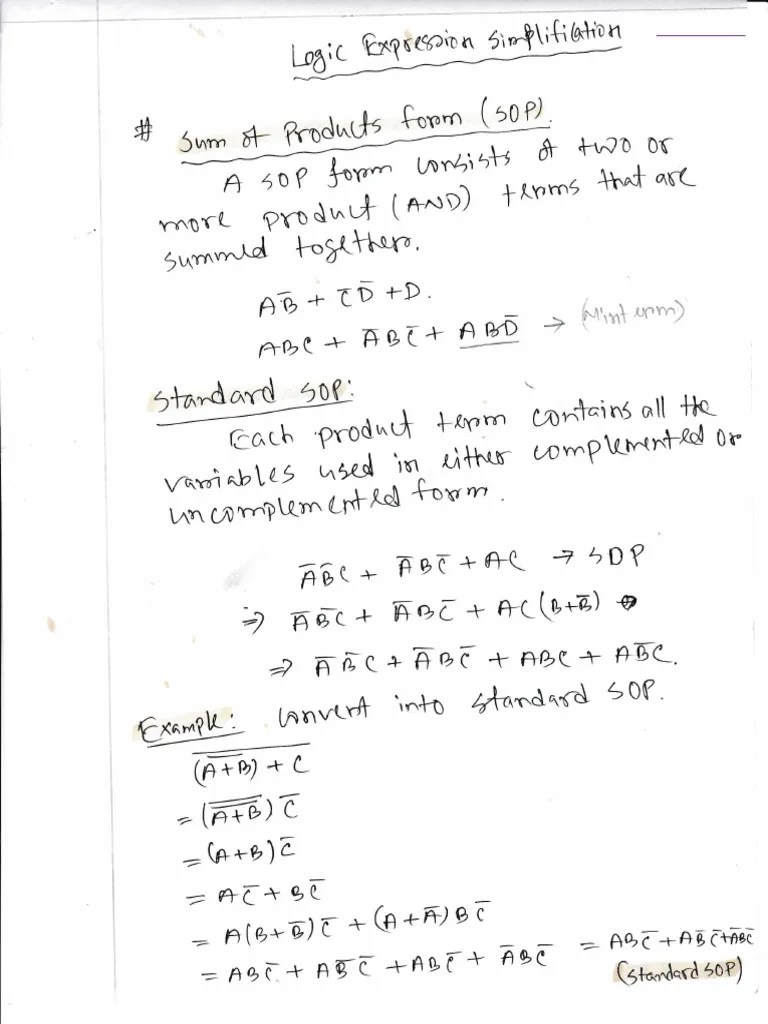 Logic Expression Simplifilation
# Sum of Products form (SOP).
A SOP form consists of two or
more product (AND) terms that are
summed together.
AB̅ + C̅D̅ + D.
ABC + A̅BC̅ + ABD̅ → (Minterm)
Standard SOP:
Each product term contains all the
variables used in either complemented or
uncomplemented form.
A̅B̅C + A̅BC̅ + AC → SOP
⇒ A̅B̅C + A̅BC̅ + AC(B+B̅)
⇒ A̅B̅C + A̅BC̅ + ABC + AB̅C.
Example: Convert into standard SOP.
$\overline{\overline{(A+B)} + C}$
= $(\overline{\overline{A+B}})\overline{C}$
= (A+B)C̅
= AC̅ + BC̅
= A(B+B̅)C̅ + (A+A̅)BC̅
= ABC̅ + AB̅C̅ + ABC̅ + A̅BC̅ = ABC̅ + AB̅C̅ + A̅BC̅
(Standard SOP)